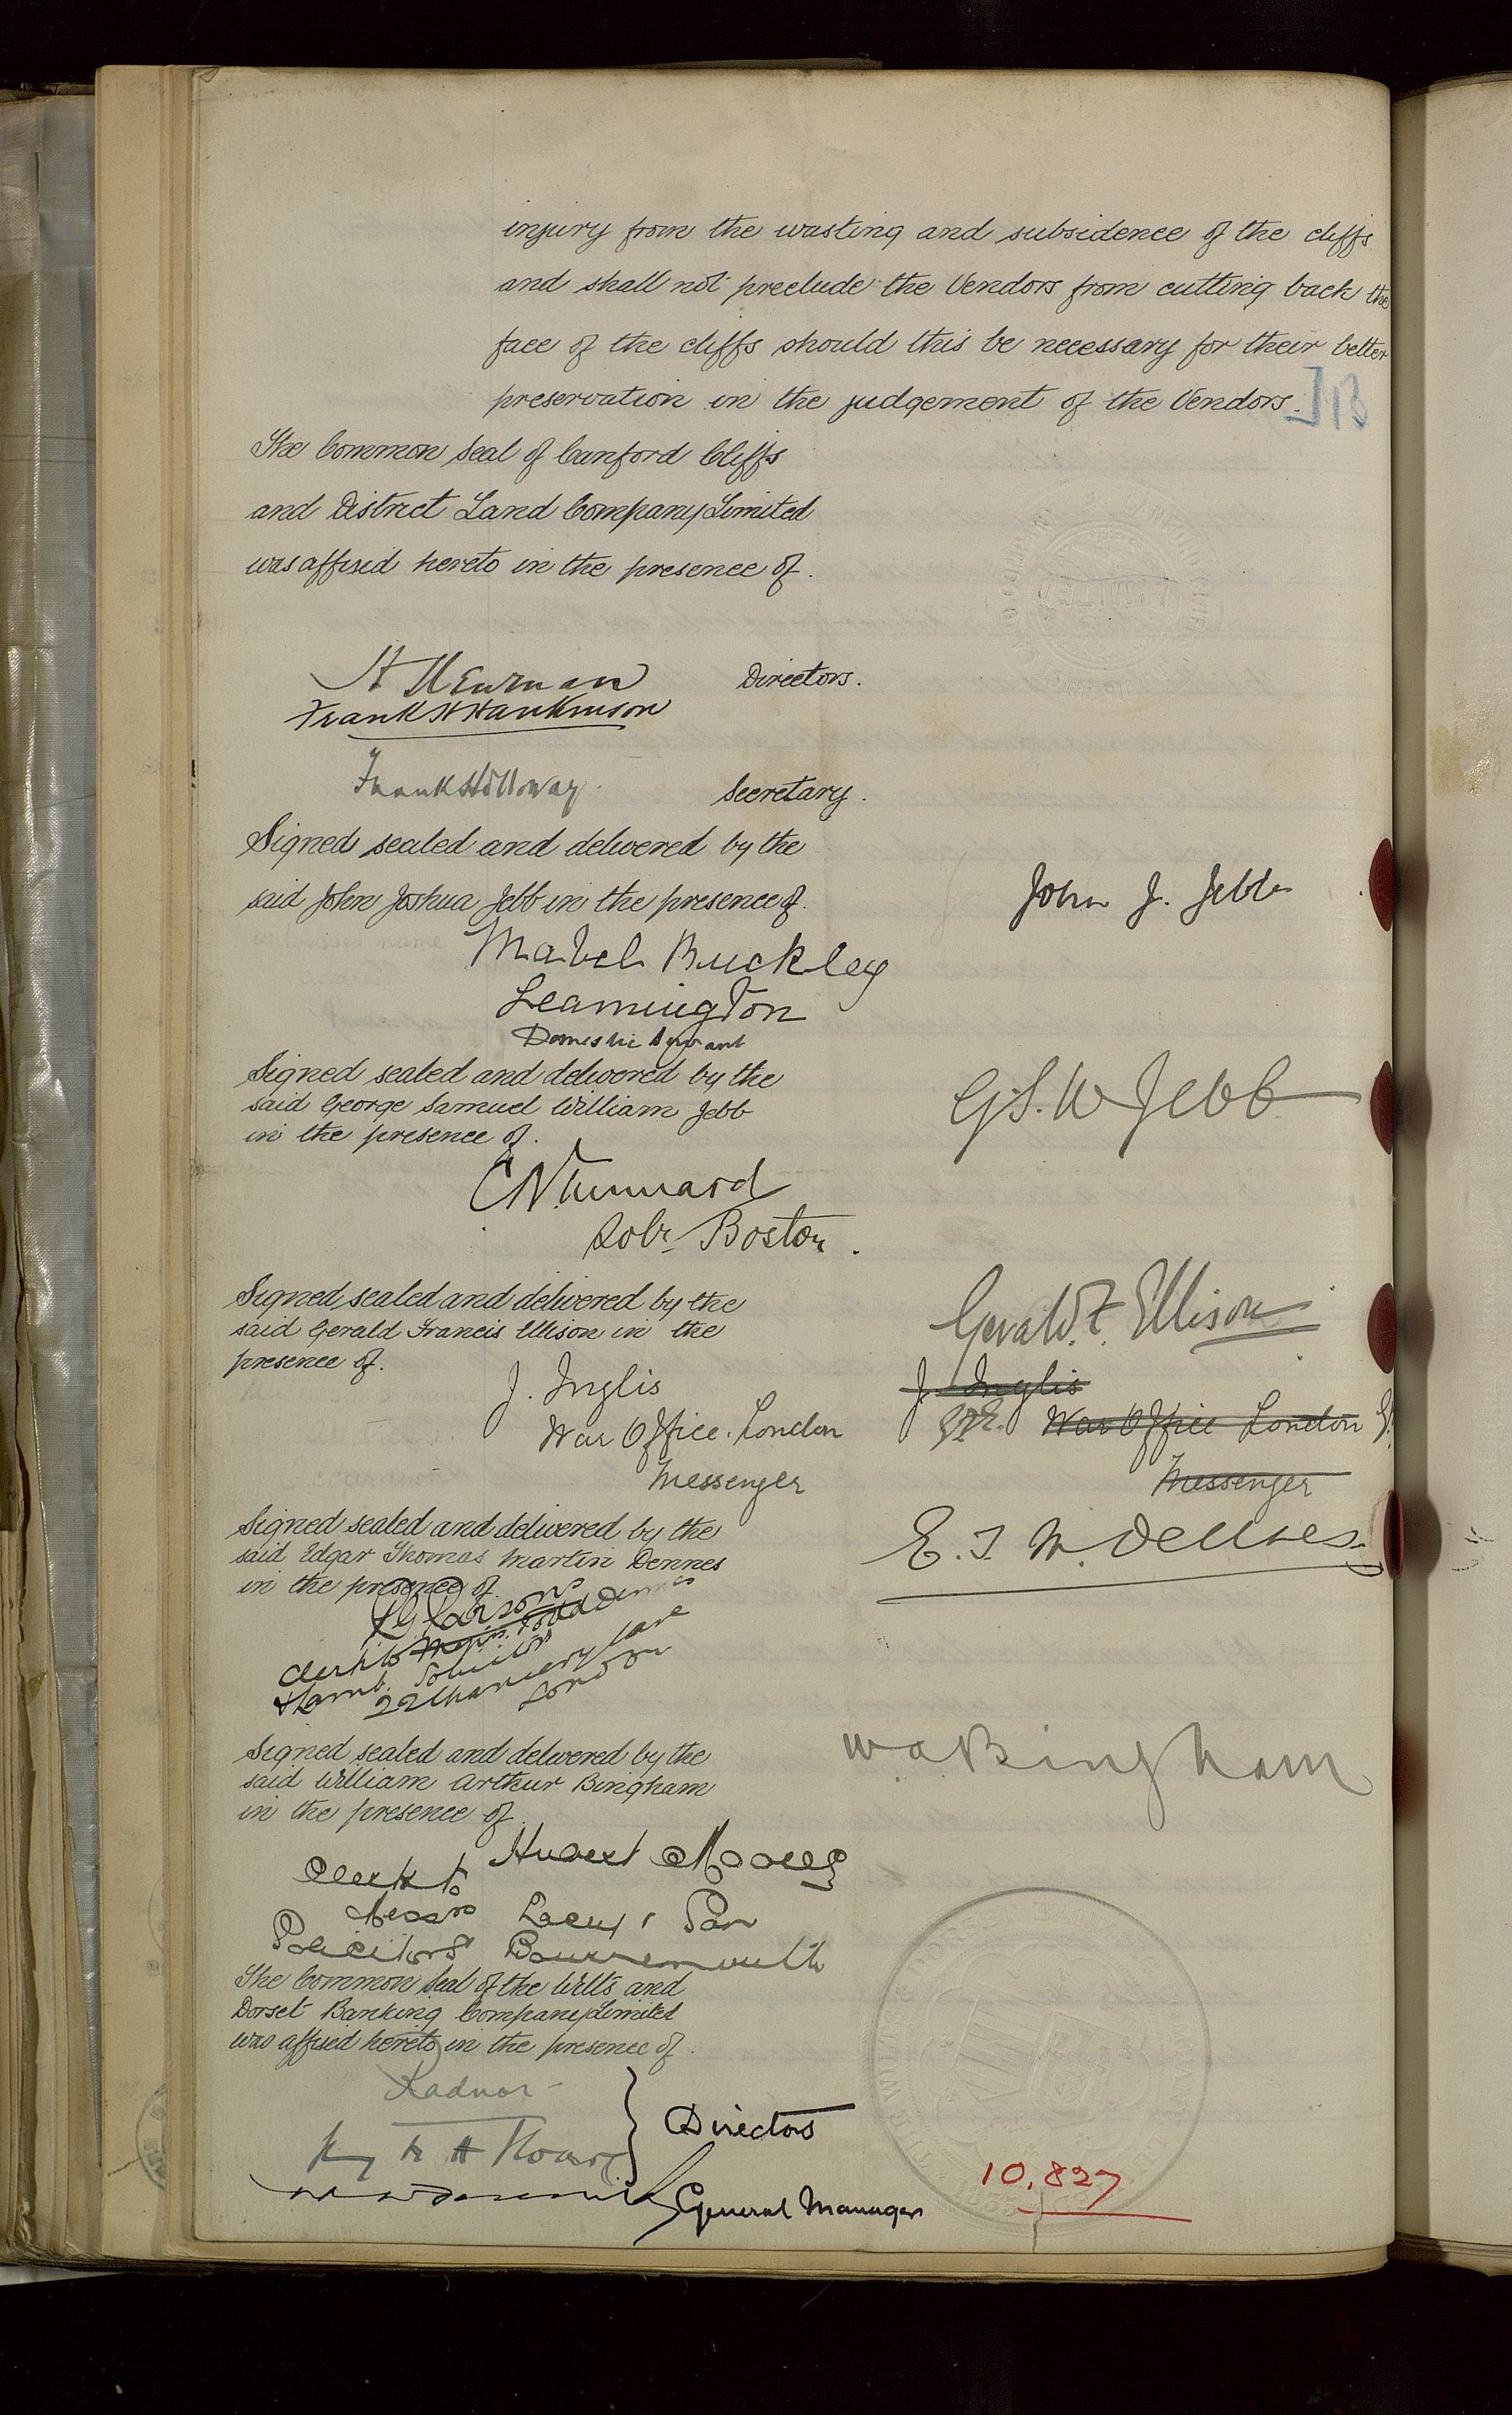 injury from the wasting and subsidence of the cliffs
and shall not preclude the Vendors from cutting back the
face of the cliffs should this be necessary for their better
preservation in the judgement of the Vendors.
The Common Seal of Canford Cliffs
and District Land Company Limited
was affixed hereto in the presence of.
H Newman Directors.
Frank H Hankinson
Frank Holloway Secretary.
Signed sealed and delivered by the
said John Joshua Jebb in the presence of.
John J. Jebb
Mabel Buckley
Leamington
Domestic Servant
Signed sealed and delivered by the
said George Samuel William Jebb
in the presence of.
G. S. W Jebb
Solr. Boston.
Signed sealed and delivered by the
said Gerald Francis Ellison in the
presence of.
Gerald. F. Ellison
J. Inglis
War Office. London
Messenger
J. Inglis
War Office London
Messenger
Signed sealed and delivered by the
said Edgar Thomas Martin Dennes
in the presence of.
E. T. M. Dennes
Clerk to Messrs.
& Lamb. Solicitors
22 Chancery Lane
London
Signed sealed and delivered by the
said William Arthur Bingham
in the presence of
W. A. Bingham
Hubert Moorey
Clerk to
Messrs Lacey & Son
Solicitors Bournemouth
The Common Seal of the Wilts and
Dorset Banking Company Limited
was affixed hereto in the presence of.
Radnor
Directors
General Manager
10,827